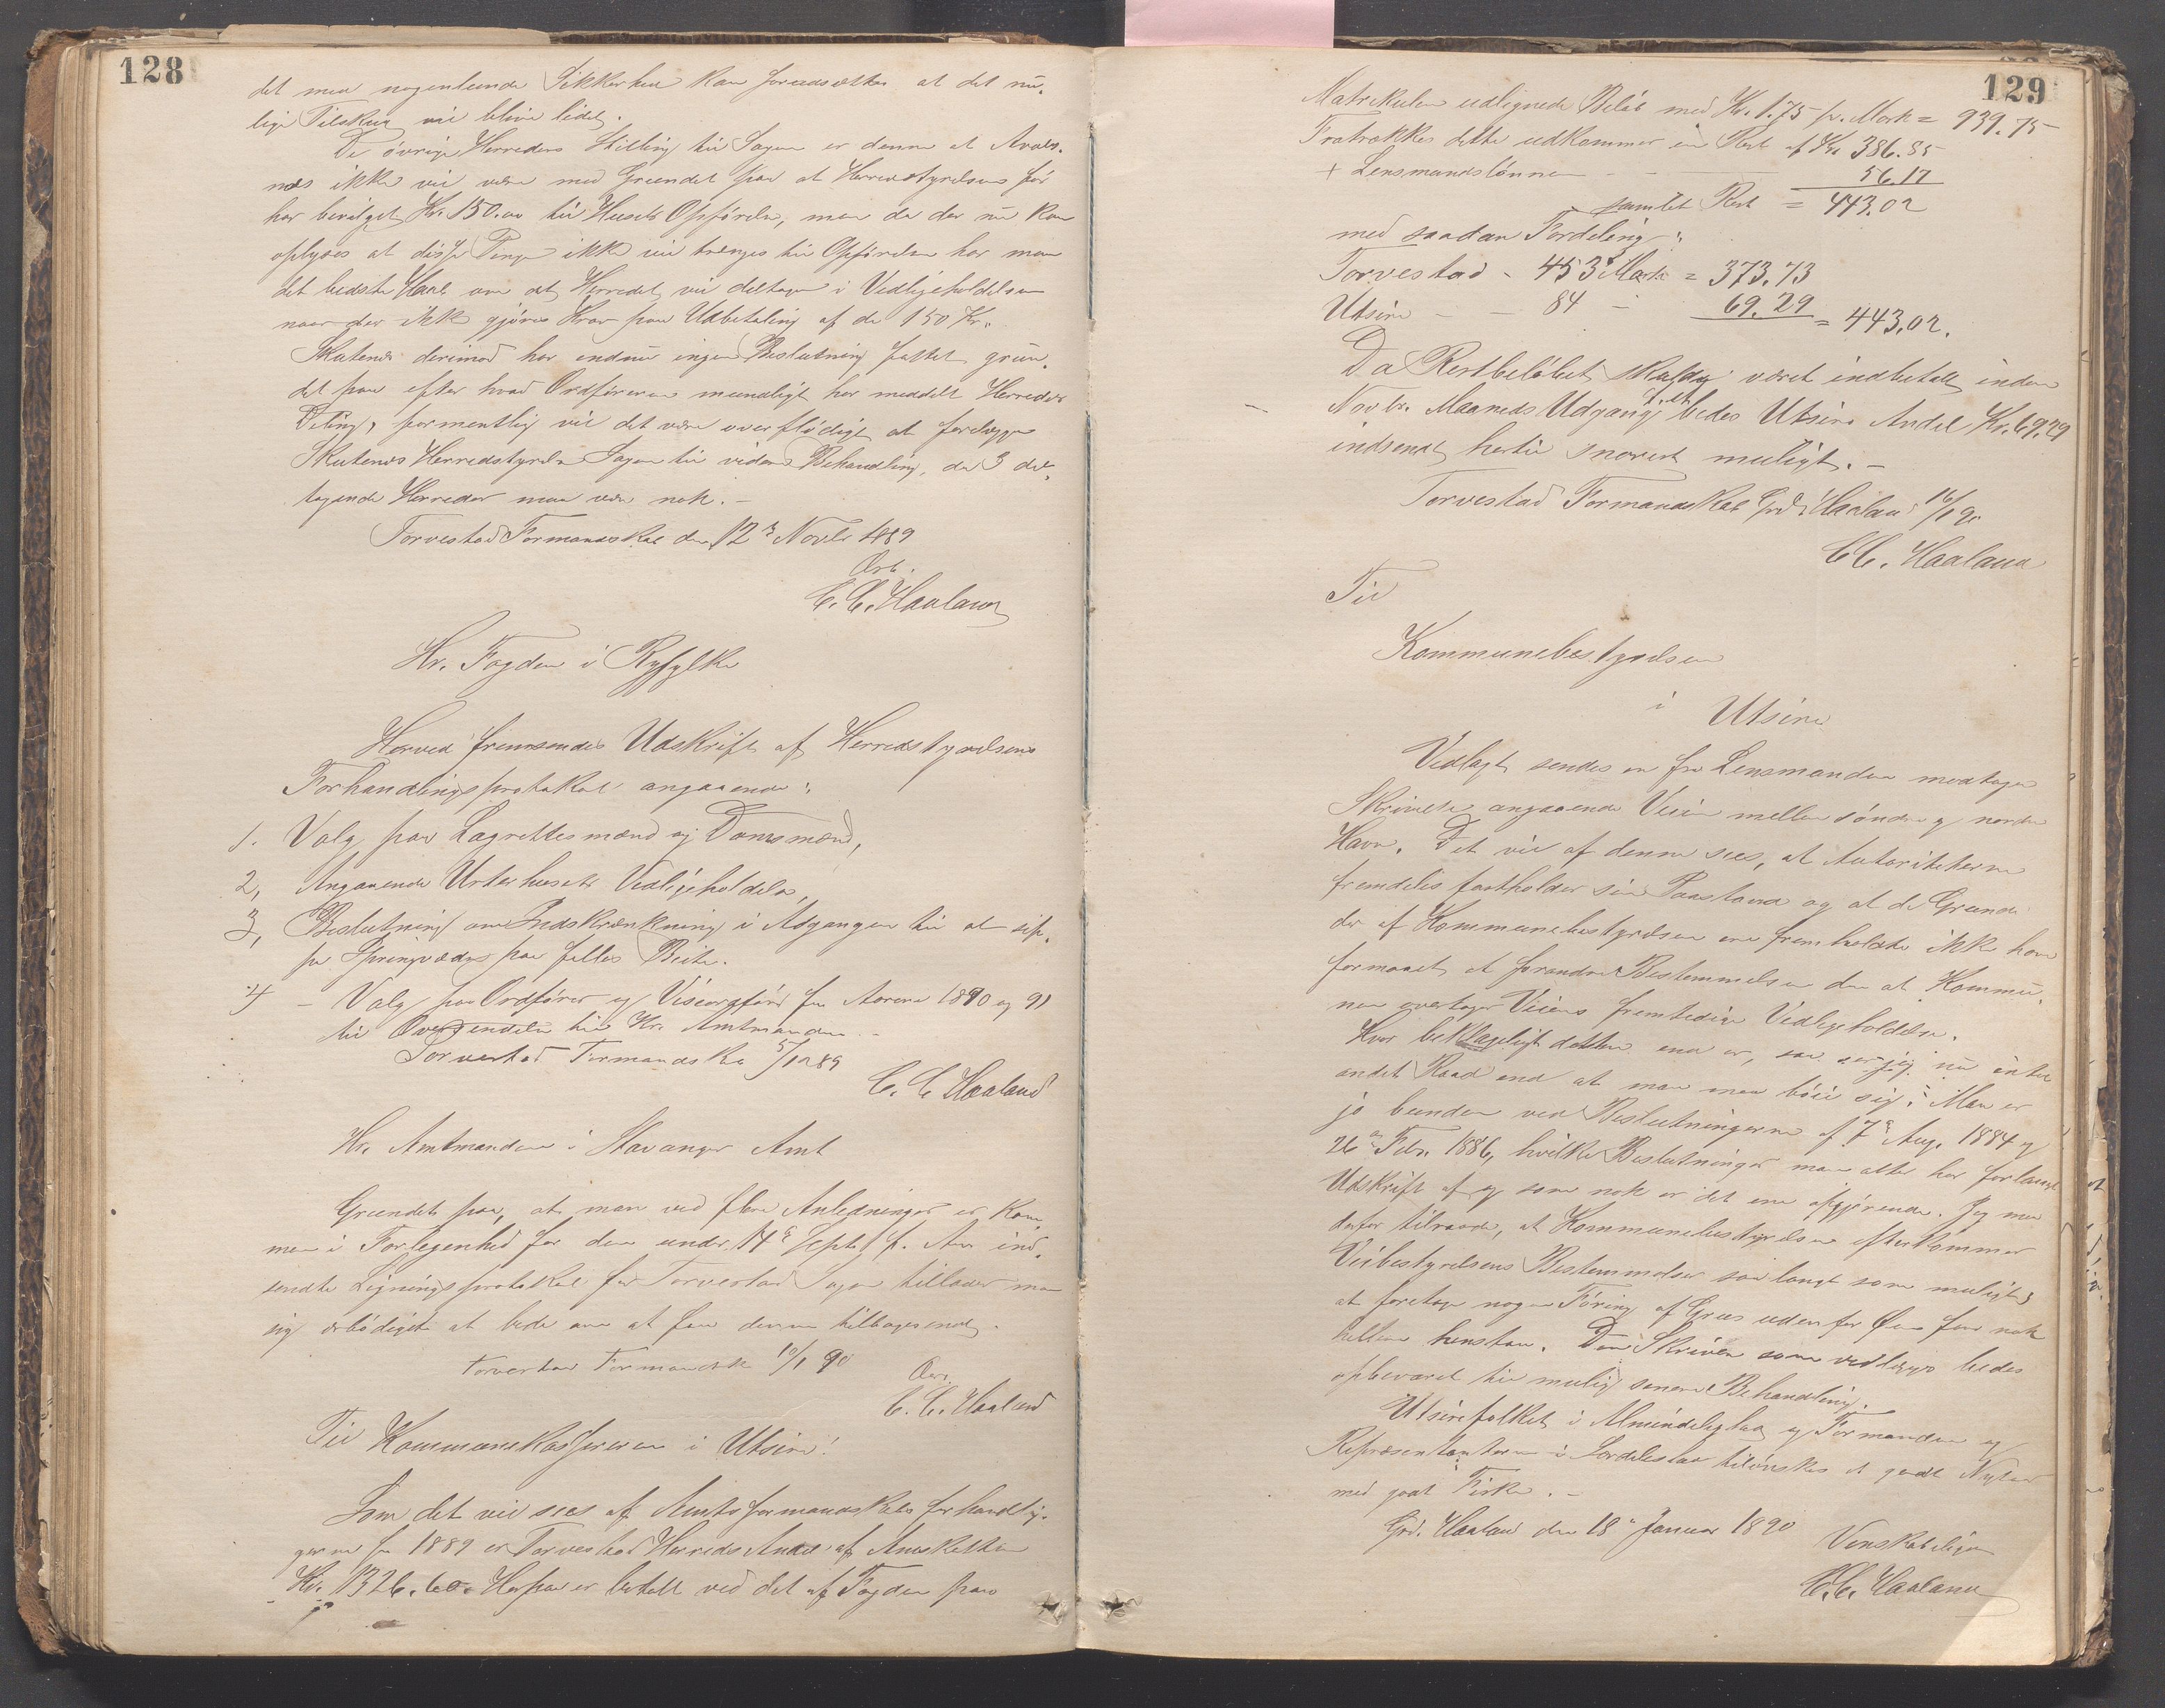 128
det med nogenlunde Sikkerhed kan forudsættes at det nu,
lige Tilskud vil blive lidet.
De övrige Herreders Stilling til Sagen er denne at Avalds,
næs ikke vil være med Grundet paa at Herredstyrelsen för
har bevilget Kr. 150.00 til Husets Opförelse, men da der nu kan
oplyses at disse Penge ikke vil trænges til Opförelsen har man
det bedste Haab om at Herredet vil deltage i Vedligeholdelsen
naar der ikke gjöres Krav paa Udbetaling af de 150 Kr.
Skutenes derimod har endnu ingen Beslutning fattet grun,
det paa efter hvad Ordföreren mundligt har meddelt Herredets
Deling, formentlig vil det være overflödigt at forelægge
Skutenes Herredstyrelse Sagen til videre Behandling, da 3 del,
tagende Herreder maa være nok. -
Torvestad Formandskab den 12 Novbr 1889
Ærb.
C. C. Haaland
Hr. Fogden i Ryfylke
Herved fremsendes Udskrift af Herredstyrelsens
Forhandlingsprotokol angaaende:
1. Valg paa Lagrettesmænd og Domsmænd,
2, Angaaende Vedligeholdelse,
3, Beslutning om Indskrænkning i Adgangen til at slip,
pe paa fælles Beite.
4 - Valg paa Ordförer og Viseordförer for Aarene 1890 og 91
til Oversendelse til Hr. Amtmanden -
Torvestad Formandska 5/12 89
C. C Haaland
Hr. Amtmanden i Stavanger Amt
Grundet paa, at man ved flere Anledninger er kom,
men i Forlegenhed for den under 14 Septbr f. Aar ind,
sendte Ligningsprotokol for Torvestad Sogn tillader man
sig ærbödigst at bede om at faa denne tilbagesendt.
Torvestad Formandsk 10/1 90
Ærb.
C. C. Haaland
Til Kommunekassereren i Utsire!
Som det vil sees af Amtsformandskabs forhandlin,
gerne for 1889 er Torvestad Herreds Andel af Amtskatten
Kr. 1326.60. Herpaa er betalt ved det af Fogden paa
129
Matrikulen udlignede Belöb med Kr. 1.75 pr. Mark = 939.75
Fratrækkes dette udkommer en Rest af Kr. 386.85
+ Lensmandslönnen - - 56.17
samlet Rest = 443.02
med saadan Fordeling:
Torvestad - 453 Mark = 373.73
Utsire - - 84 - 69.29 = 443.02.
Da Restbelöbet skulde været indbetalt inden
Novbr. Maaneds Udgang, bedes Utsire Andel Kr. 69.29
indsendt hertil snarest muligt. -
Torvestad Formandskab Grd. Haaland 16/1 90
C C. Haaland
Til
Kommunebestyrelsen
i Utsire
Vedlagt sendes en fra Lensmanden modtagen
Skrivelse angaaende Veien mellem söndre og nordre
Havn. Det vil af denne sees, at Autoriteterne
fremdeles fastholder sin Paastand og at de Grunde
der af Kommunebestyrelsen ere fremholdte ikke have
formaaet at forandre Bestemmelsen den at Kommu,
nen overtager Veiens fremtidige Vedligeholdelse.
Hvor beklageligt dette end er, saa ser jeg nu intet
andet Raad end at man maa böie sig; Man er
jo bunden ved Beslutningerne af 7 Aug. 1884 og
26 Febr. 1886, hvilke Beslutninger man atter har forlangt
Udskrift af og som nok er det ene afgjörende. Jeg maa
derfor tilraade, at Kommunebestyrelsen efterkommer
Veibestyrelsens Bestemmelser saa langt som muligt,
at foretage nogen Föring af Grus udenfor Öen faar nok
heller henstaa. Den Skrivelse som vedlægges bedes
opbevaret til mulig senere Behandling.
Utsirefolket i Almindelighed og Formanden og
Repræsentanterne i Særdeleshed tilönskes et godt Nytaar
med godt Fiske. -
Grd. Haaland den 18 Januar 1890
Venskabeligen
C. C. Haaland